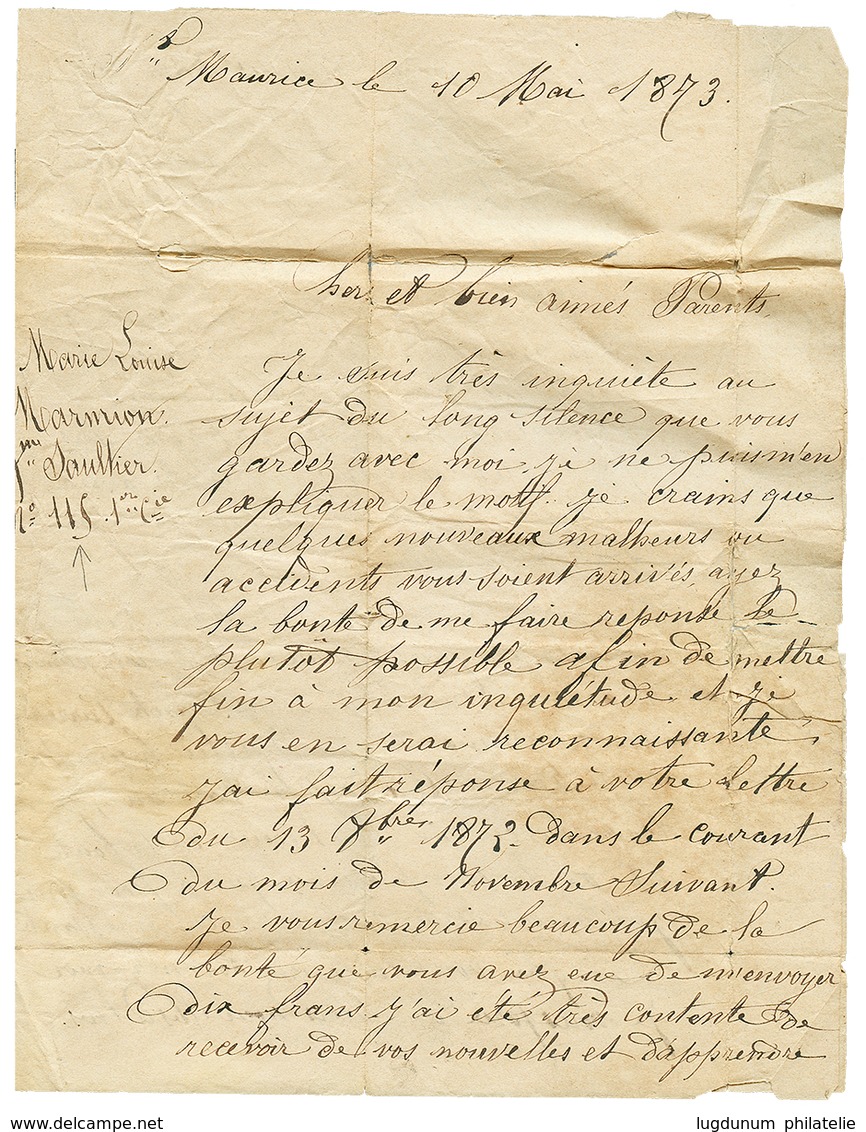 Maurice le 10 Mai 1873.
hers et bien aimés Parents,
Marie Louise
Marmion.
Saultier.
No 115. 1ere Cie
Je suis très inquiète au
sujet du long silence que vous
gardez avec moi, je ne puis m'en
expliquer le motif. je crains que
quelques nouveaux malheurs ou
accidents vous soient arrivés, ayez
la bonté de me faire reponse le
plutôt possible afin de mettre
fin à mon inquiétude et je
vous en serai reconnaissante,
J'ai fait réponse à votre lettre
du 13 8bre 1872. dans le courant
du mois de Novembre Suivant.
Je vous remercie beaucoup de la
bonté que vous avez eue de m'envoyer
dix frans. j'ai été très contente de
recevoir de vos nouvelles et d'apprendre
www.delcampe.net
lugdunum philatelie